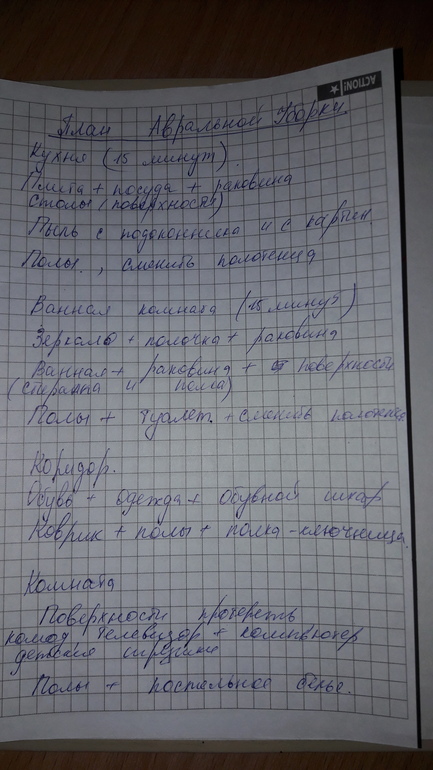 ACTION!
План Авральной Уборки
Кухня (15 минут).
Плита + посуда + раковина
Столы (поверхности)
Пыль с подоконника и с картин.
Полы, сменить полотенца
Ванная комната (15 минут)
Зеркало + полочка + раковина
Ванная + раковина + поверхности
(стиралка и пола)
Полы + туалет + сменить полотенце
Коридор.
Обувь + одежда + обувной шкаф
Коврик + полы + полка-ключница.
Комната
Поверхности протереть
комод телевизор + компьютер
детские игрушки
Полы + постельное белье.